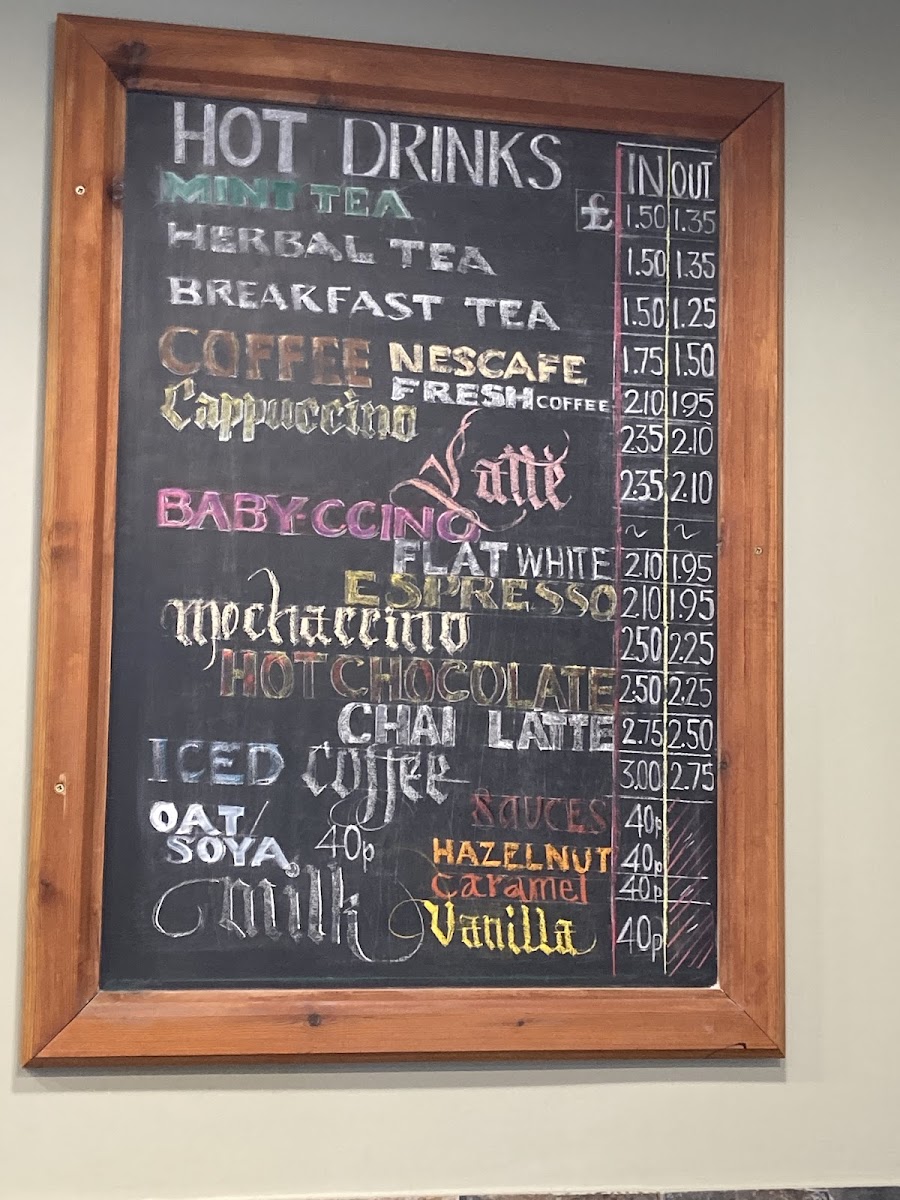 HOT DRINKS IN OUT
MINT TEA £ 1.50 1.35
HERBAL TEA 1.50 1.35
BREAKFAST TEA 1.50 1.25
COFFEE NESCAFE 1.75 1.50
FRESH COFFEE 2.10 1.95
Cappuccino 2.35 2.10
Latte 2.35 2.10
BABY-CCINO ~ ~
FLAT WHITE 2.10 1.95
ESPRESSO 2.10 1.95
mochaccino 2.50 2.25
HOT CHOCOLATE 2.50 2.25
CHAI LATTE 2.75 2.50
ICED COFFEE 3.00 2.75
SAUCES 40p
OAT/
SOYA 40p HAZELNUT 40p
caramel 40p
milk Vanilla 40p